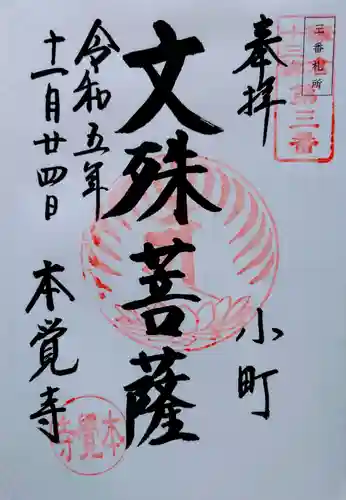 奉拝
三番札所
第三番
文殊菩薩
小町
令和五年
十一月廿四日
本覚寺
本覺寺